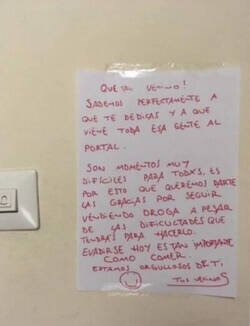 QUE TAL VECINO!
SABEMOS PERFECTAMENTE A
QUE TE DEDICAS Y A QUE
VIENE TODA ESA GENTE AL
PORTAL.
SON MOMENTOS MUY
DIFÍCILES PARA TODXS, ES
POR ESTO QUE QUEREMOS DARTE
LAS GRACIAS POR SEGUIR
VENDIENDO DROGA A PESAR
DE LAS DIFICULTADES QUE
TENDRÁS PARA HACERLO.
EVADIRSE HOY ES TAN IMPORTANTE
COMO COMER.
ESTAMOS ORGULLOSOS DE TI.
TUS VECINOS